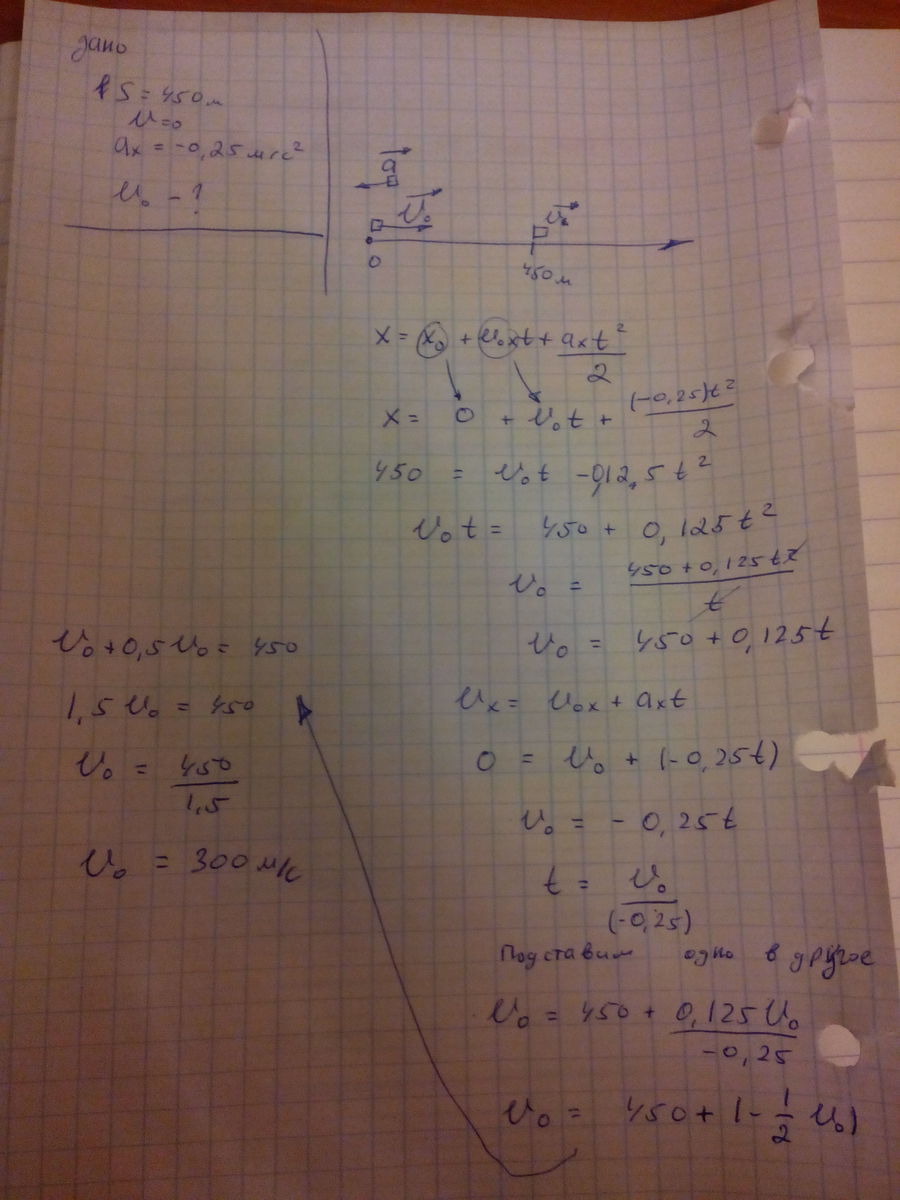 дано
S = 450 м
v = 0
ax = -0,25 м/с²
v₀ - ?
a
v₀
v
0
450 м
x = x₀ + v₀xt + axt²/2
x = 0 + v₀t + (-0,25)t²/2
450 = v₀t - 0,125t²
v₀t = 450 + 0,125t²
v₀ = 450 + 0,125t²/t
v₀ = 450 + 0,125t
vx = v₀x + axt
0 = v₀ + (-0,25t)
v₀ = - 0,25t
t = v₀/(-0,25)
Подставим одно в другое
v₀ = 450 + 0,125v₀/-0,25
v₀ = 450 + (-1/2 v₀)
v₀ + 0,5v₀ = 450
1,5v₀ = 450
v₀ = 450/1,5
v₀ = 300 м/с